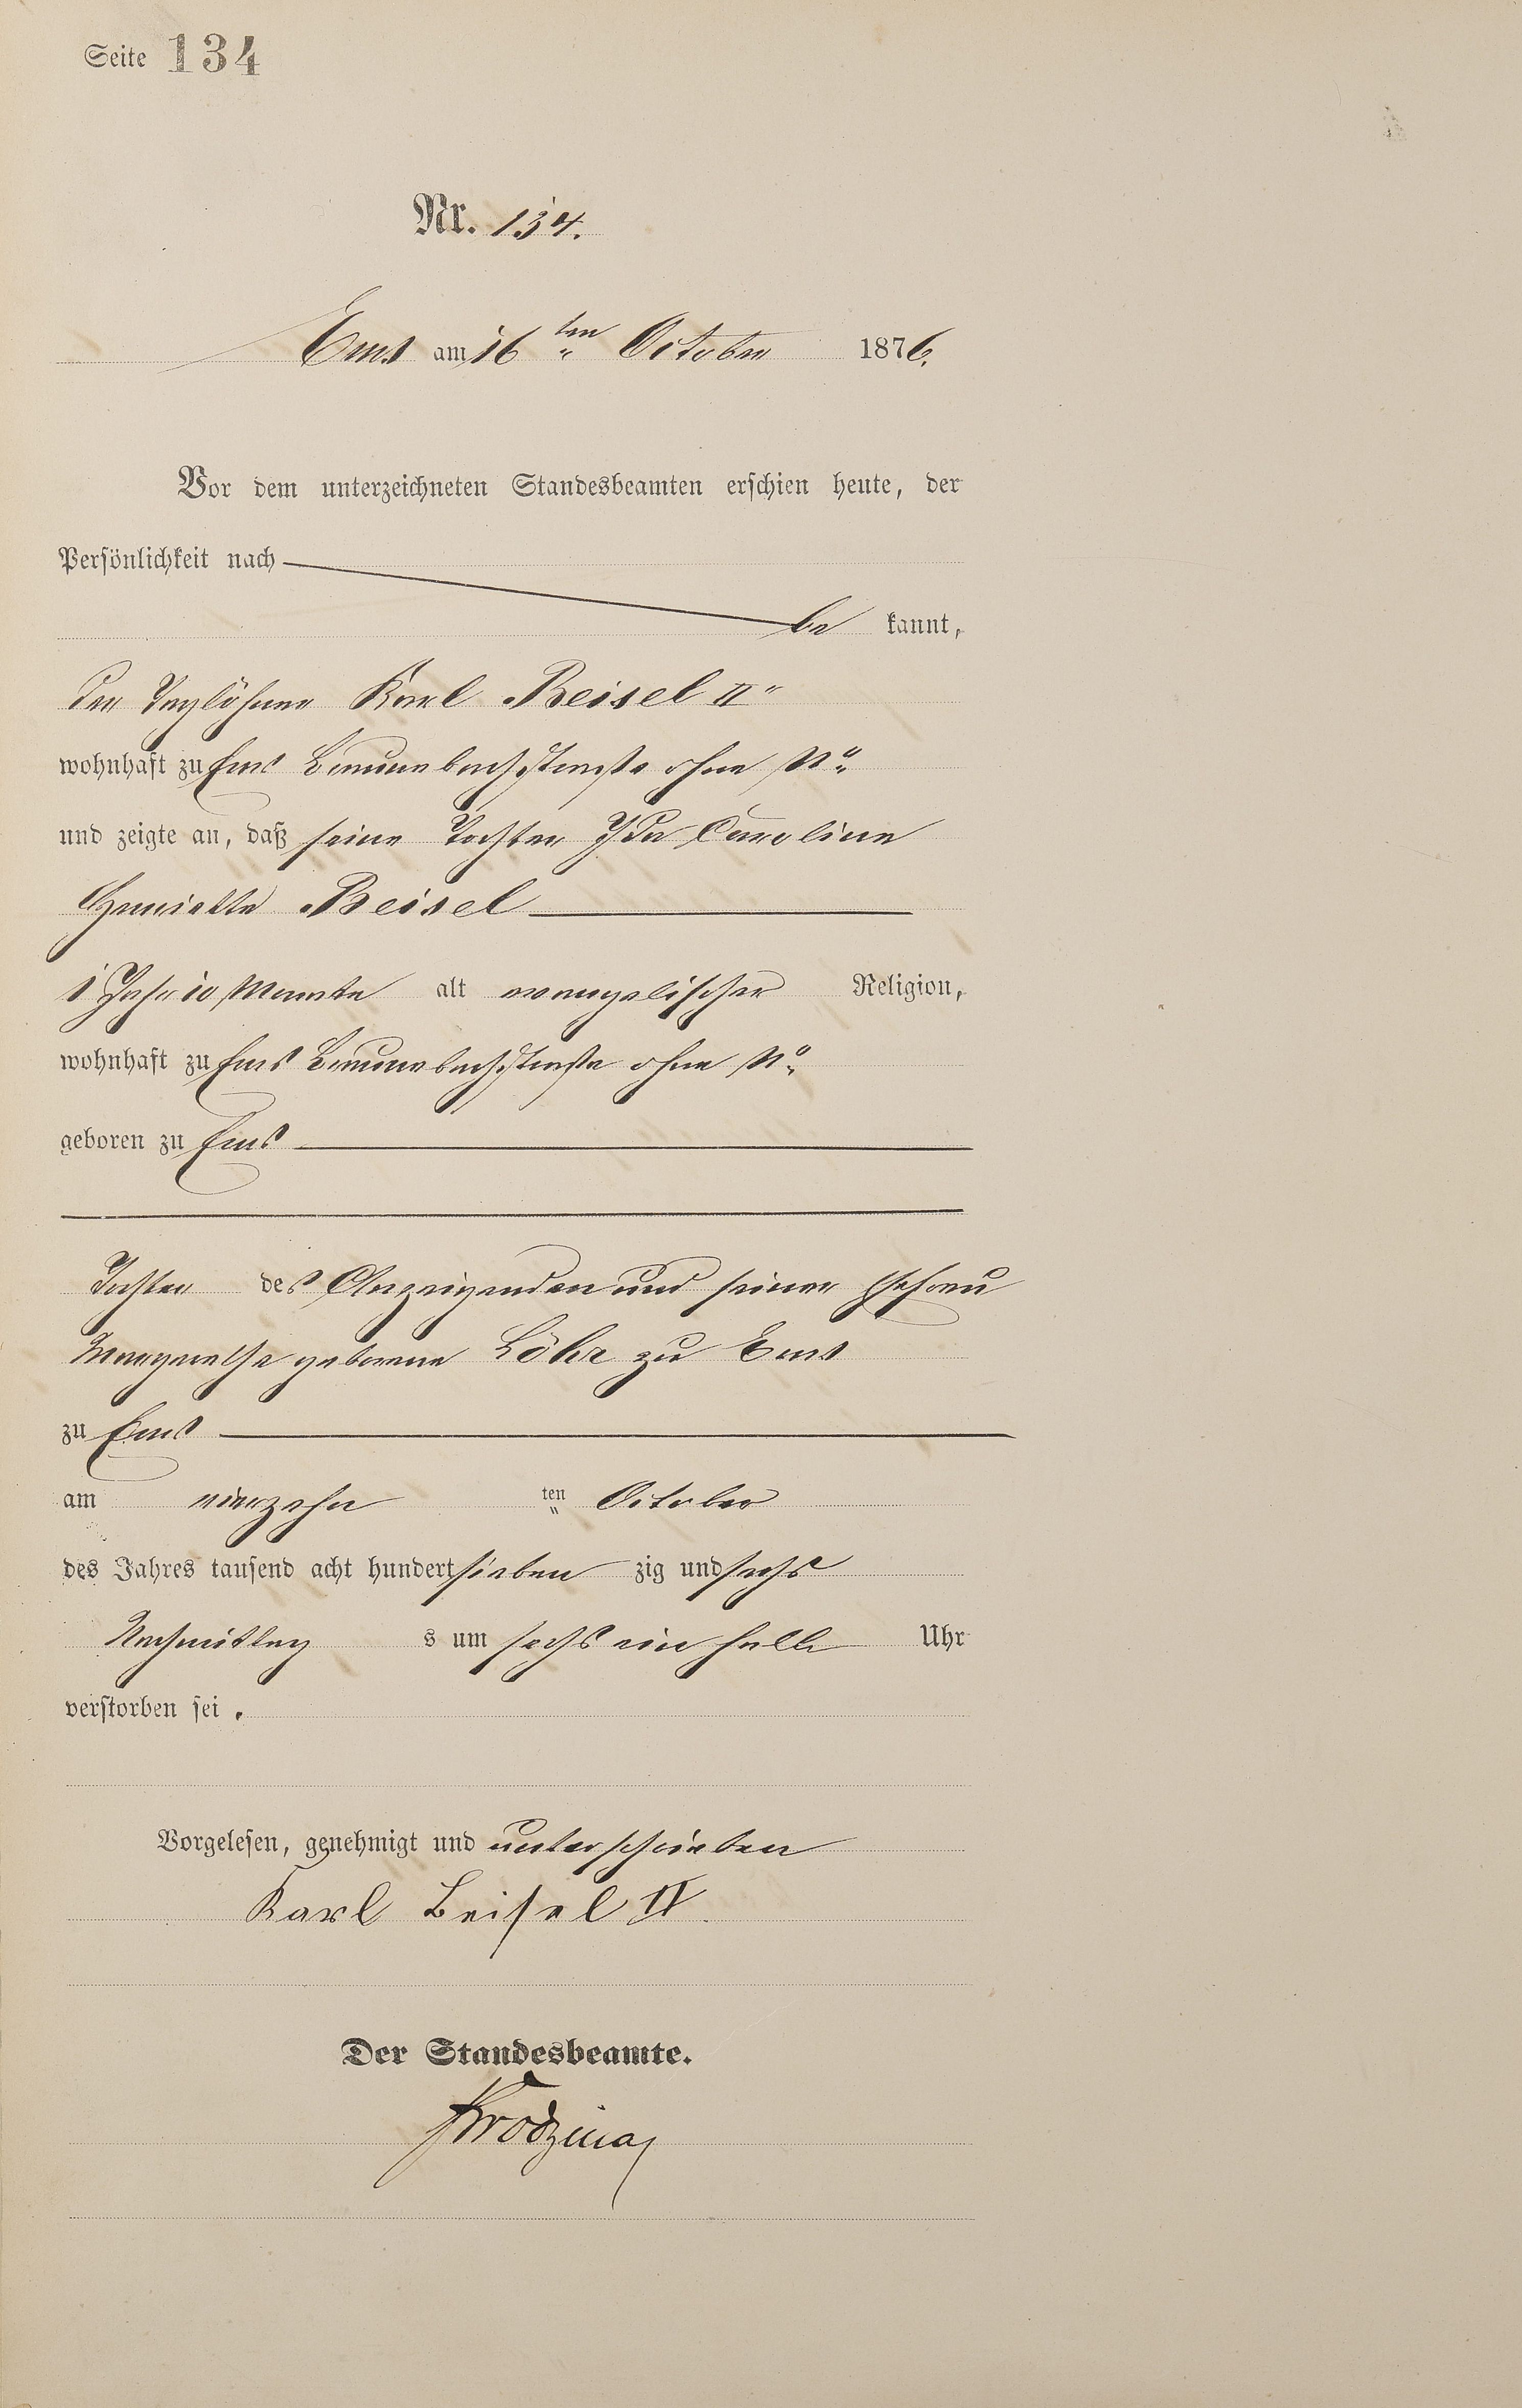 Seite 134
Nr. 134.
Ems am 16ten October 1876.
Vor dem unterzeichneten Standesbeamten erschien heute, der
Persönlichkeit nach
be kannt,
der Taglöhner Karl Beisel II"
wohnhaft zu Ems Braunebachstraße ohne No
und zeigte an, daß seine Tochter Ida Caroline
Henriette Beisel
1 Jahr 10 Monate alt evangelischer Religion,
wohnhaft zu Ems Braunebachstraße ohne No
geboren zu Ems
Tochter des Anzeigenden und seiner Ehefrau
Margarethe geborene Löhr zu Ems
zu Ems
am vierzehn ten October
des Jahres tausend acht hundert sieben zig und sechs
Nachmittag s um sechs ein halb Uhr
verstorben sei.
Vorgelesen, genehmigt und unterschrieben
Karl Beisel II
Der Standesbeamte.